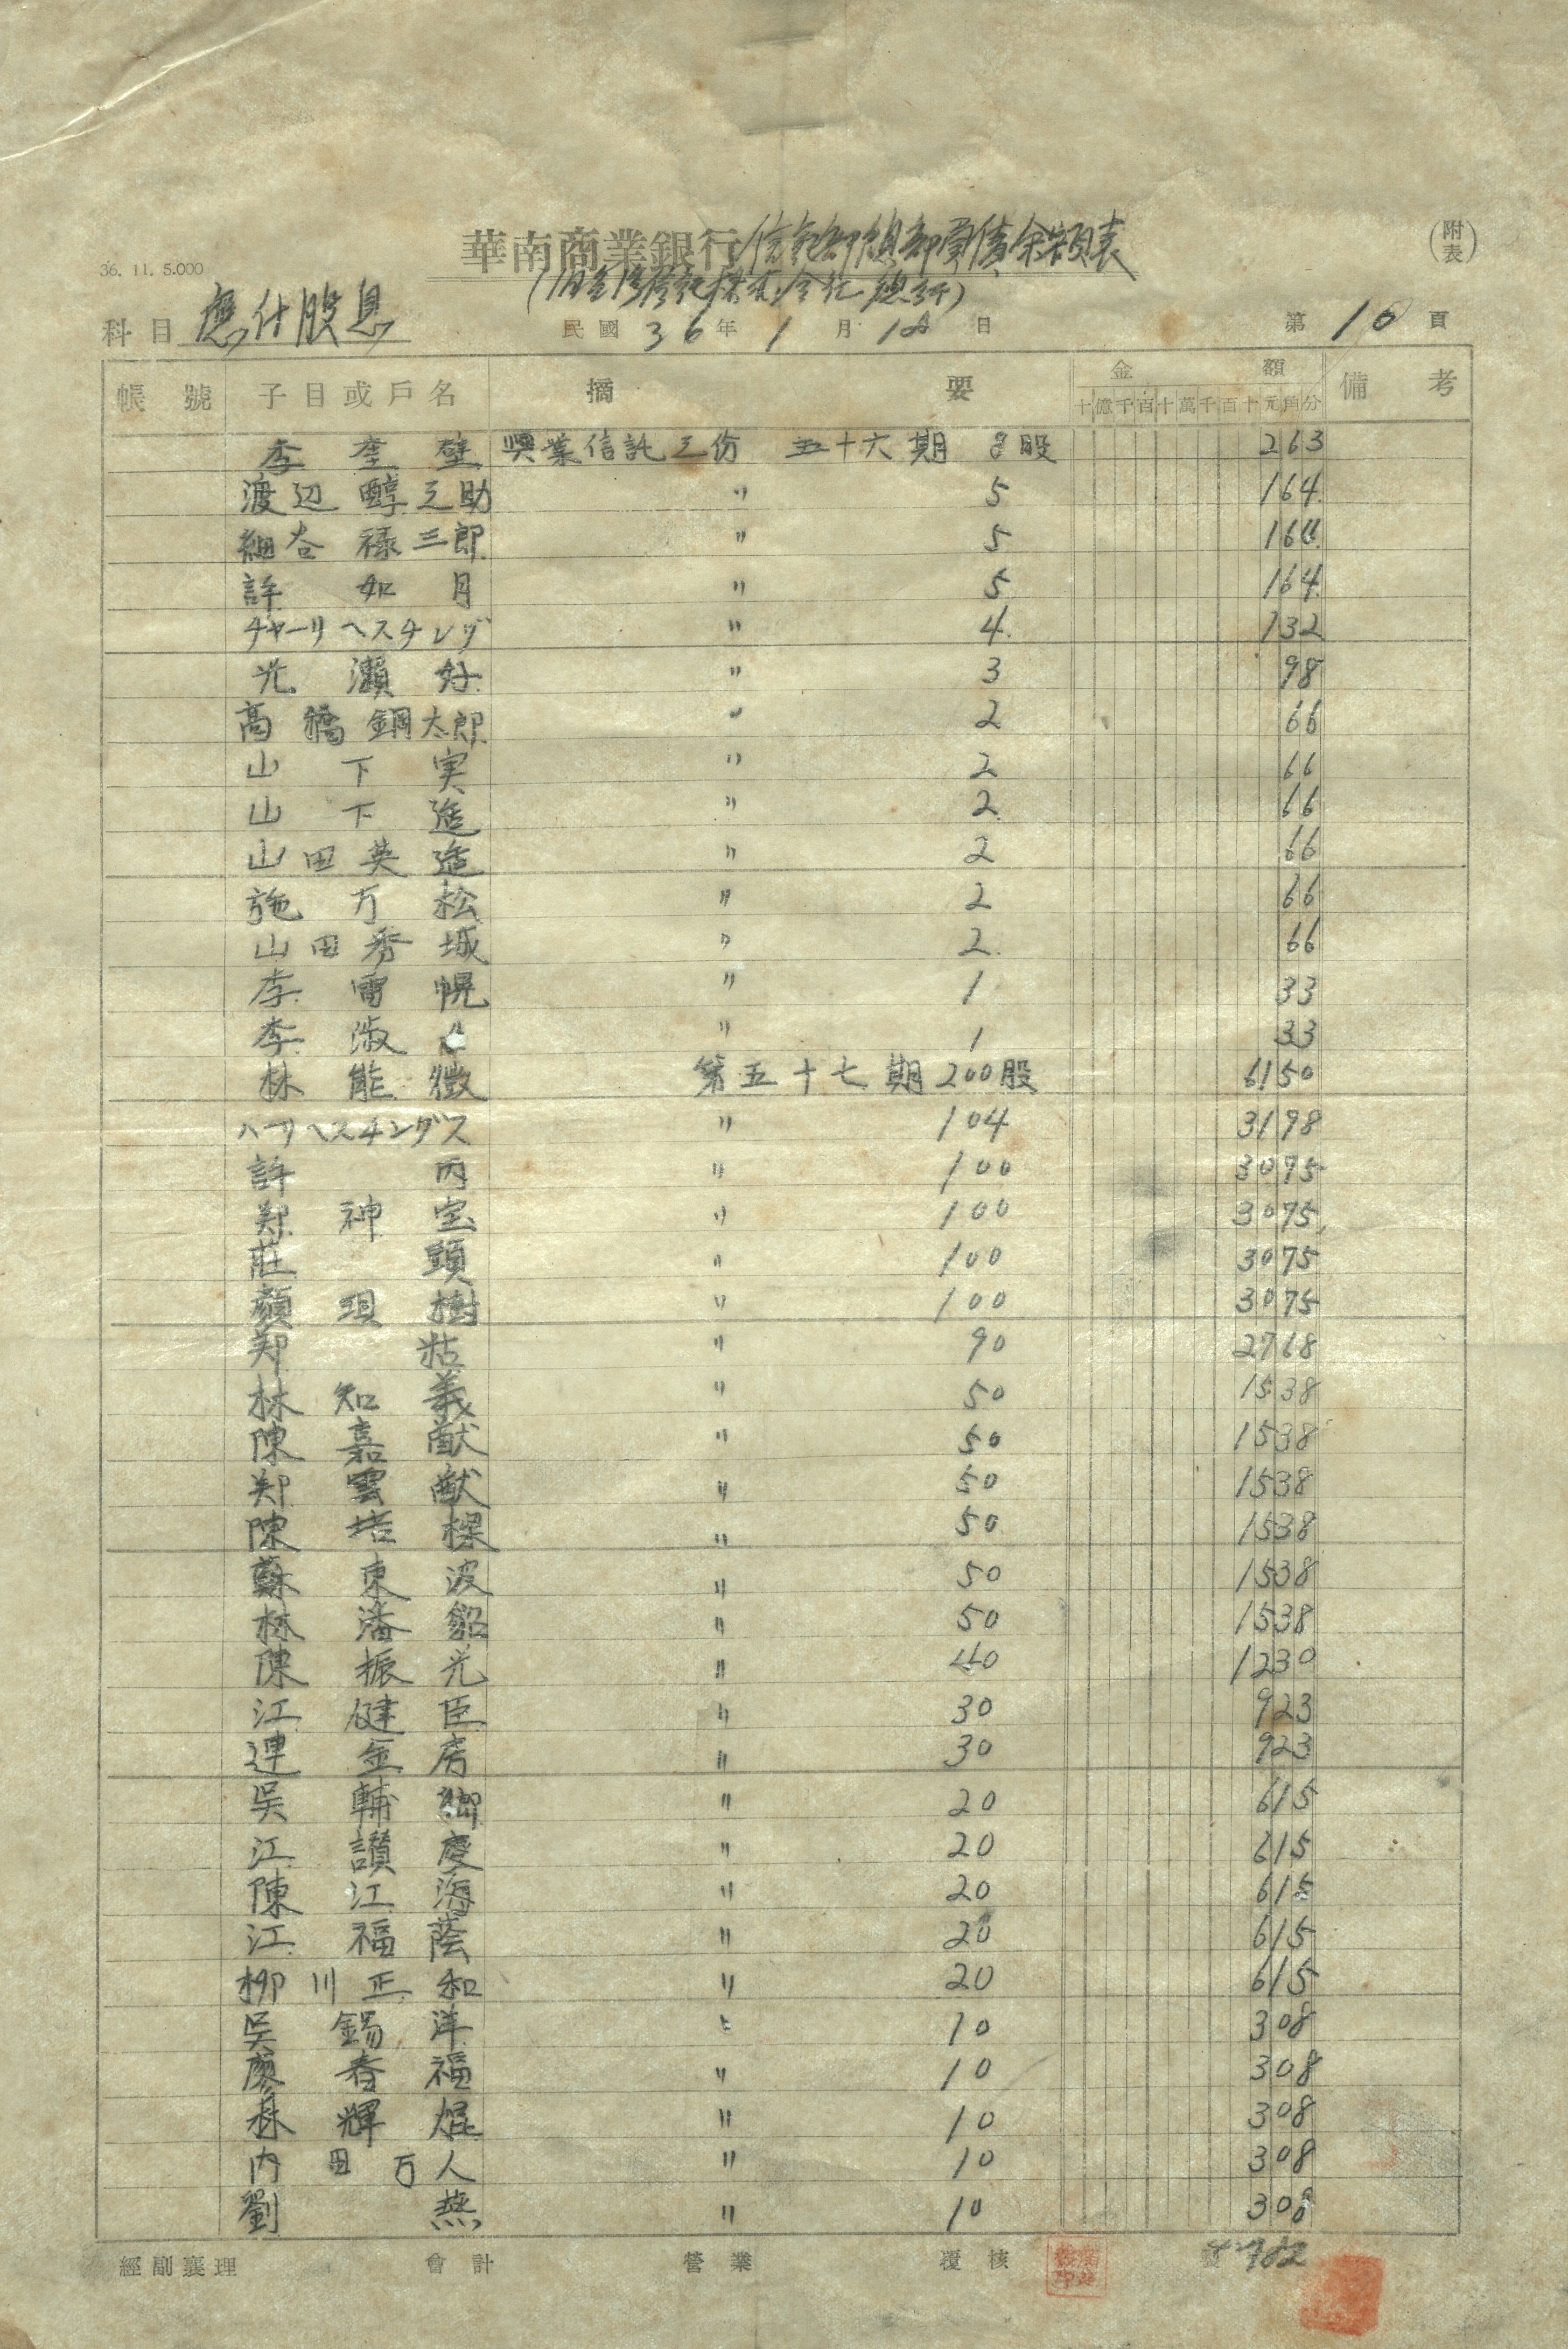 華南商業銀行信託部總部負債余額表
(附表)
36. 11. 5.000
科目 應付股息
民國 36 年 1 月 18 日
第 10 頁
帳號 子目或戶名 摘要 金額 備考
十億千百十萬千百十元角分
李 奎 壁 興業信託之份 五十六期 8股 263
渡辺 醇之助 〃 5 164
細谷 祿三郎 〃 5 164
許 如 月 〃 5 164
チャーリヘスチング 〃 4 132
光 瀨 好 〃 3 98
高橋鋼太郎 〃 2 66
山 下 実 〃 2 66
山 下 進 〃 2 66
山田英進 〃 2 66
施 万 松 〃 2 66
山田秀城 〃 2 66
李 雷 幌 〃 1 33
李 淑 〃 1 33
林 能 徴 第五十七期 200股 6150
ハーリヘスチングス 〃 104 3198
許 丙 〃 100 3075
郑 神 宝 〃 100 3075
莊 頭 〃 100 3075
顏 項 樹 〃 100 3075
郑 粘 〃 90 2768
林 知 義 〃 50 1538
陳 嘉 猷 〃 50 1538
郑 雲 猷 〃 50 1538
陳 培 樑 〃 50 1538
蘇 東 波 〃 50 1538
林 潘 貂 〃 50 1538
陳 振 光 〃 40 1230
江 健 臣 〃 30 923
連 金 房 〃 30 923
吳 輔 鄉 〃 20 615
江 讃 慶 〃 20 615
陳 江 海 〃 20 615
江 福 蔭 〃 20 615
柳川正和 〃 20 615
吳 錫 洋 〃 10 308
廖 春 福 〃 10 308
林 輝 焜 〃 10 308
内田万人 〃 10 308
劉 燕 〃 10 308
經副襄理 會計 營業 覆核